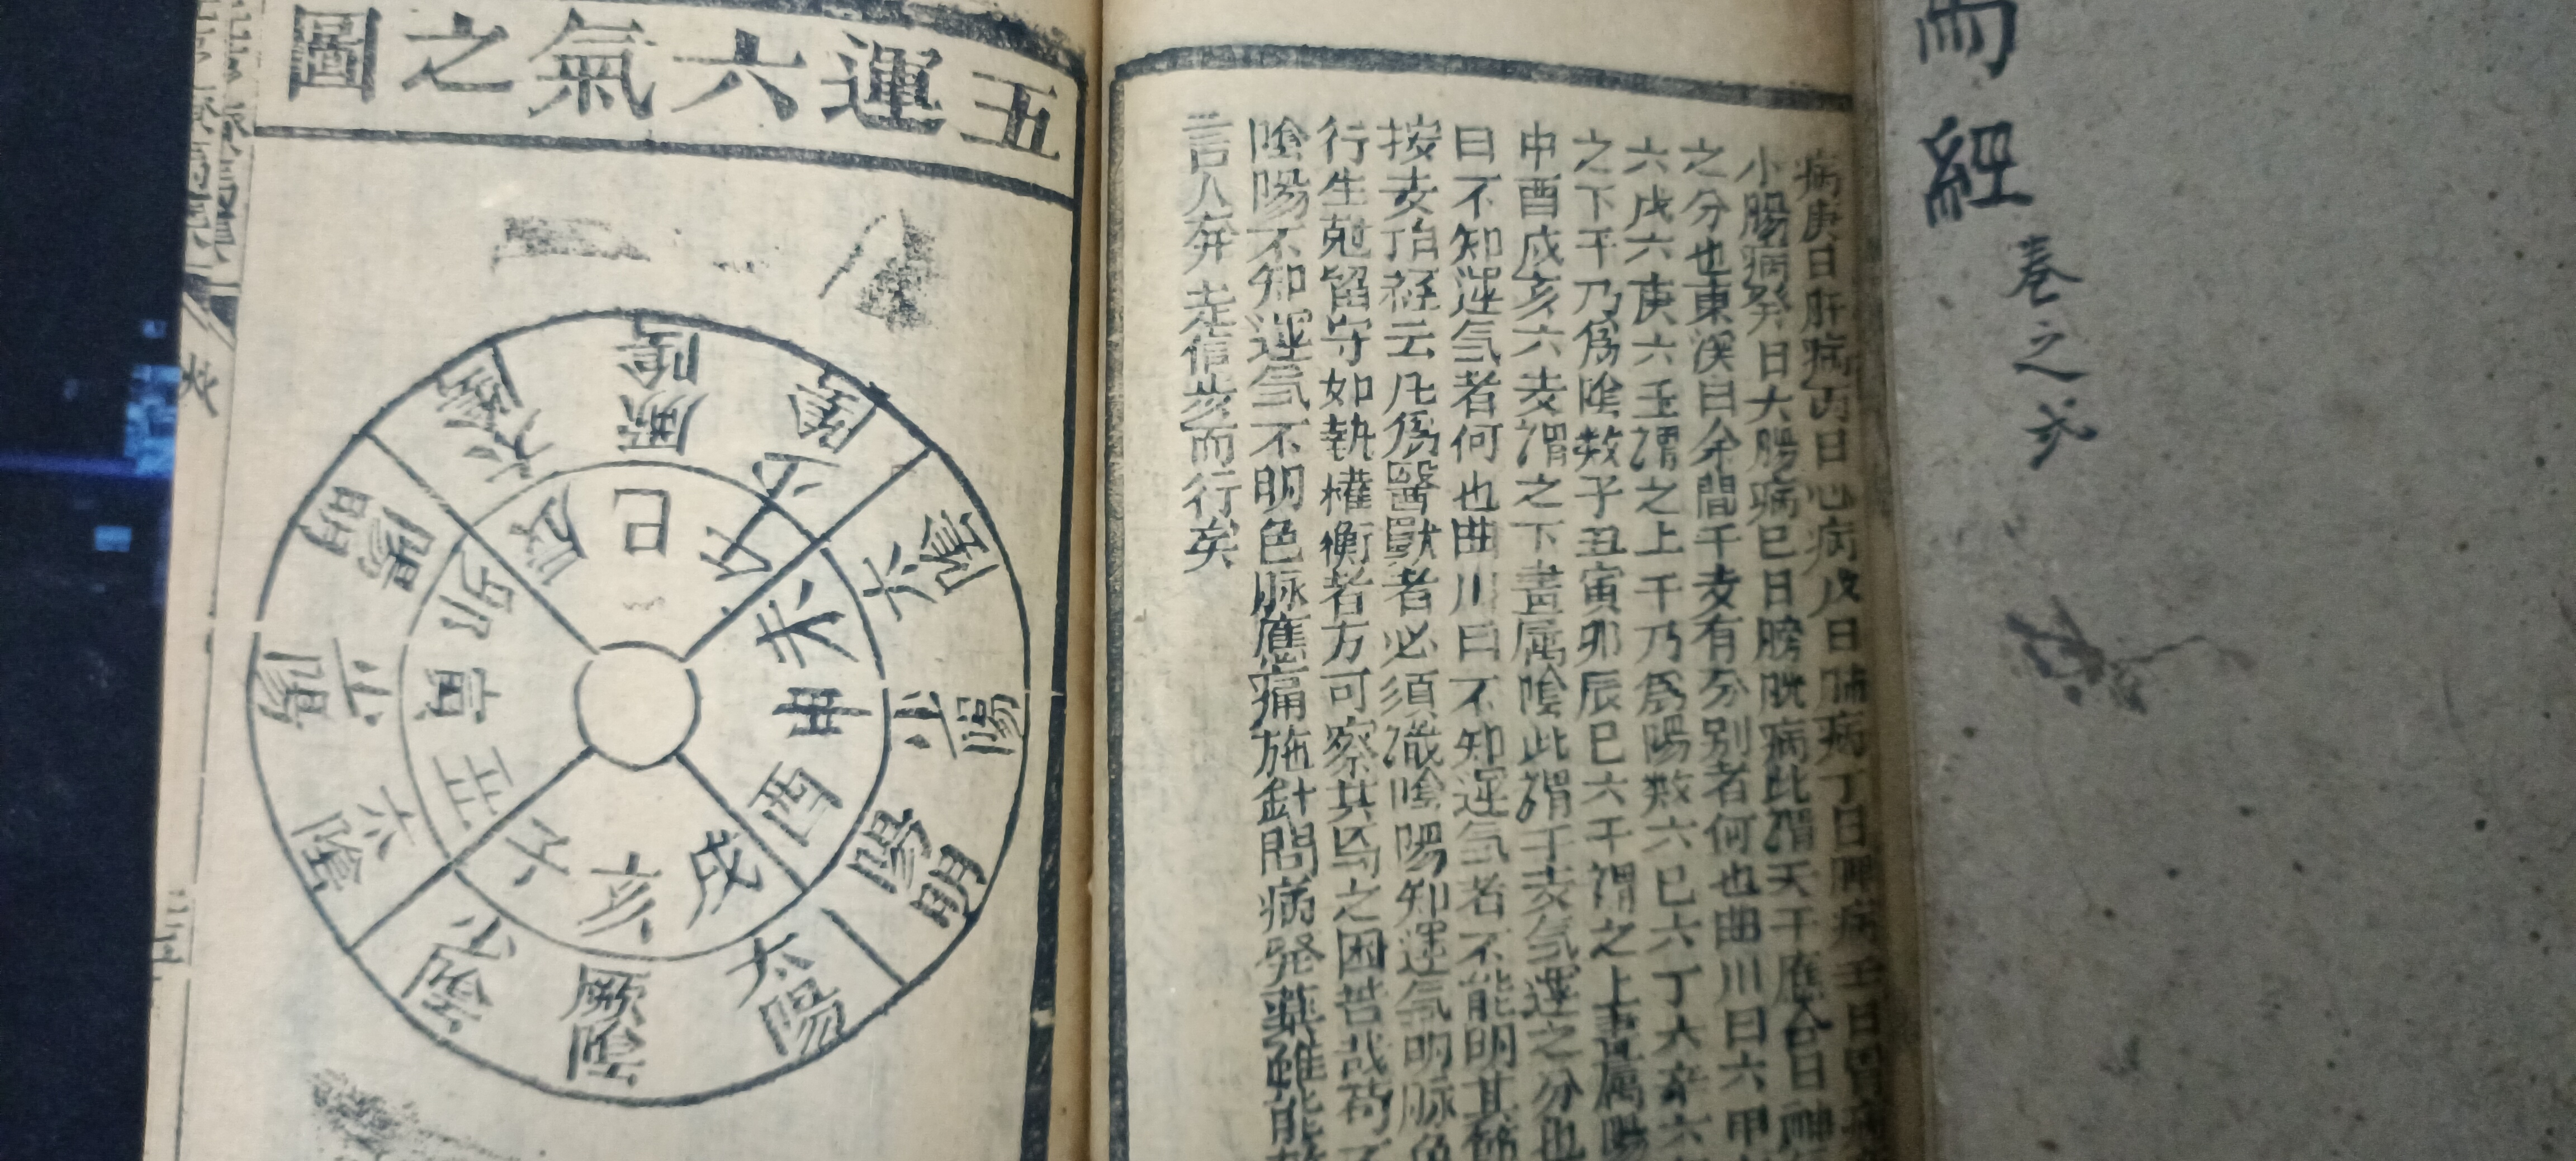 經
卷之
病庚日肝病丙日心病戊日肺病丁日脾病壬日胃病
小腸病癸日大腸病巳日膀胱病此謂天干應合日
之分也東溪曰余間干支有分別者何也曲川曰六甲
六戊六庚六壬謂之上干乃爲陽数六巳六丁六辛六
之下干乃爲陰数子丑寅卯辰巳六干謂之上畫屬陽
申酉戌亥六支謂之下畫屬陰此謂干支氣運之分也
曰不知運气者何也曲川曰不知運气者不能明其
按支干經云凡爲醫獸者必須識陰陽知運气明脉色
行生尅留守如執權衡者方可察其馬之困苦哉苟不
陰陽不知運气不明色脉應痛施針問病発藥雖能
言人奔走信步而行矣
五運六氣之圖
厥陰
少陰
太陰
少陽
陽明
太陽
厥陰
少陰
太陰
少陽
陽明
太陽
巳
午
未
申
酉
戌
亥
子
丑
寅
卯
辰